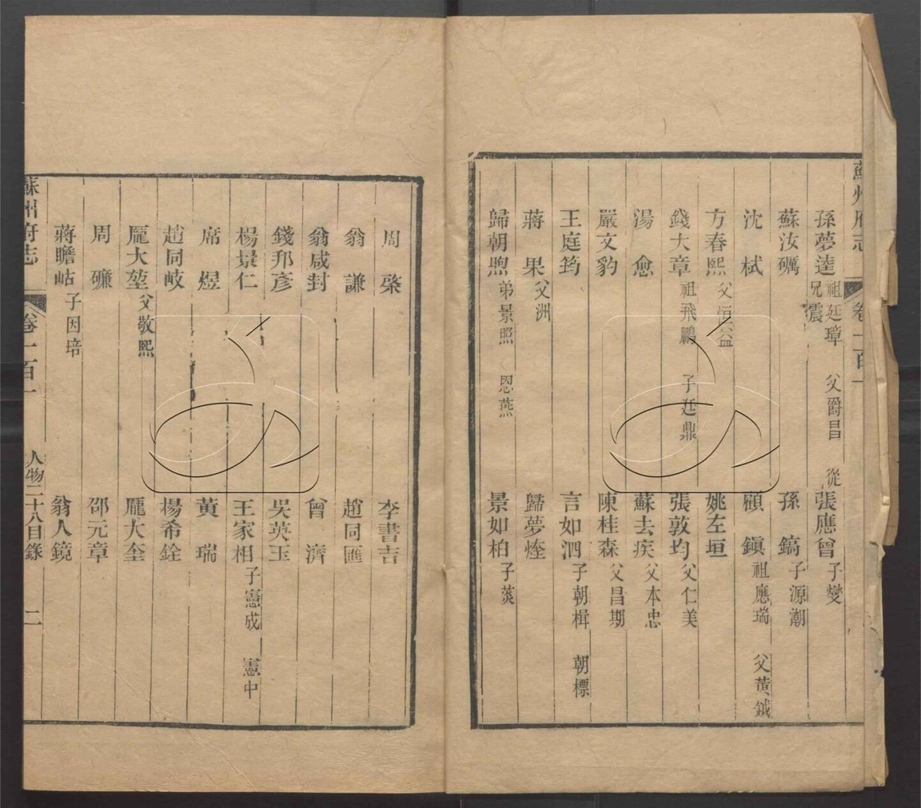 蘇州府志 卷一百一
孫夢逵 祖廷璋 父爵昌 從兄震 張應曾 子燮
蘇汝礪 孫鎬 子源潮
沈栻 顧鎮 祖應瑞 父黃鉞
方春熙 父恒益 姚左垣
錢大章 祖飛鵬 子廷鼎 張敦均 父仁美
湯愈 蘇去疾 父本忠
嚴文豹 陳桂森 父昌期
王庭筠 言如泗 子朝楫 朝標
蔣果 父洲 歸夢煃
歸朝煦 弟景照 恩燕 景如柏 子葵
周棨 李書吉
翁謙 趙同匯
翁咸封 曾濟
錢邦彥 吳英玉
楊景仁 王家相 子憲成 憲中
席煜 黃瑞
趙同岐 楊希銓
龐大堃 父敬熙 龐大奎
周礹 邵元章
蔣瞻岵 子因培 翁人鏡
蘇州府志 卷一百一 人物二十八目錄 二